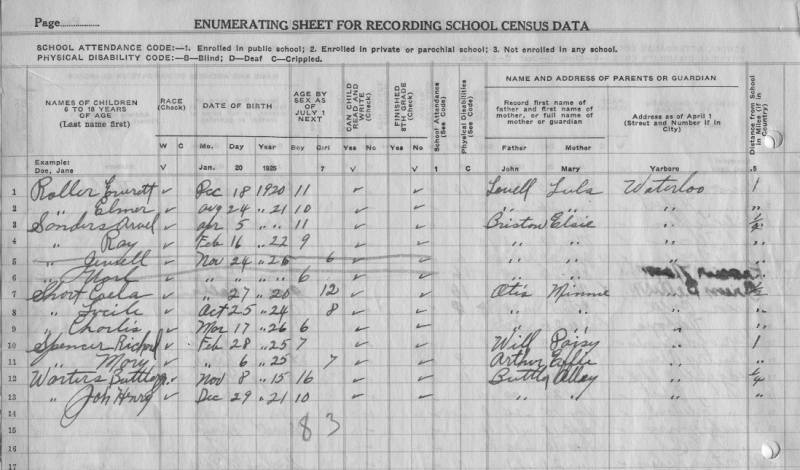 Page
ENUMERATING SHEET FOR RECORDING SCHOOL CENSUS DATA
SCHOOL ATTENDANCE CODE:—1. Enrolled in public school; 2. Enrolled in private or parochial school; 3. Not enrolled in any school.
PHYSICAL DISABILITY CODE:—B—Blind; D—Deaf C—Crippled.
NAMES OF CHILDREN 6 TO 18 YEARS OF AGE (Last name first) RACE (Check) DATE OF BIRTH AGE BY SEX AS OF JULY 1 NEXT CAN CHILD READ AND WRITE (Check) FINISHED 8TH GRADE (Check) School Attendance (See Code) Physical Disabilities (See Code) NAME AND ADDRESS OF PARENTS OR GUARDIAN Distance from School in Miles (if in Country)
Record first name of father and first name of mother, or full name of mother or guardian Address as of April 1 (Street and Number if in City)
W C Mo. Day Year Boy Girl Yes No Yes No Father Mother
Example: Doe, Jane V Jan. 20 1925 7 V V 1 C John Mary Yarboro .5
1 Roller Everett ✓ Dec 18 1920 11 ✓ ✓ Lovell Lula Waterloo 1
2 " Elmer ✓ Aug 24 " 21 10 ✓ ✓ " " " "
3 Sanders Arvel ✓ Apr 5 " " 11 ✓ ✓ Briston Elsie " 1/2
4 " Ray ✓ Feb 16 " 22 9 ✓ ✓ " " " "
5 " Jewell ✓ Nov 24 " 26 6 ✓ ✓ " " " "
6 " ✓ " " " " 6 ✓ ✓ " " "
7 Short ✓ " 27 " 20 12 ✓ ✓ Otis Minnie 1/2
8 " Lucile ✓ Oct 25 " 24 8 ✓ ✓ " " " "
9 " Charlie ✓ Mar 17 " 26 6 ✓ ✓ " " " "
10 Spencer Richard ✓ Feb 28 " 25 7 ✓ ✓ Will Daisy " 1
11 " Mary ✓ " 6 " 25 7 ✓ ✓ Arthur Effie " "
12 Warters Buttler ✓ Nov 8 " 15 16 ✓ ✓ Buttler Alley " 1/4
13 " Joh Henry ✓ Dec 29 " 21 10 ✓ ✓ " " " "
14
15 83
16
17